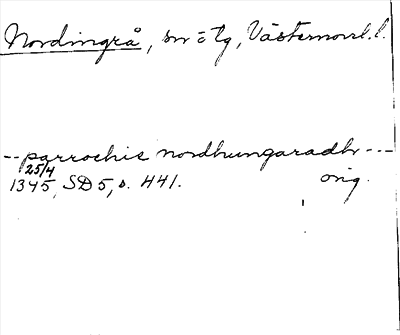 Nordingrå, sn = tg, Västernorrl. l.
-- parrochis nordhungaradhr ---
25/4
1345, SD 5, s. 441. orig.